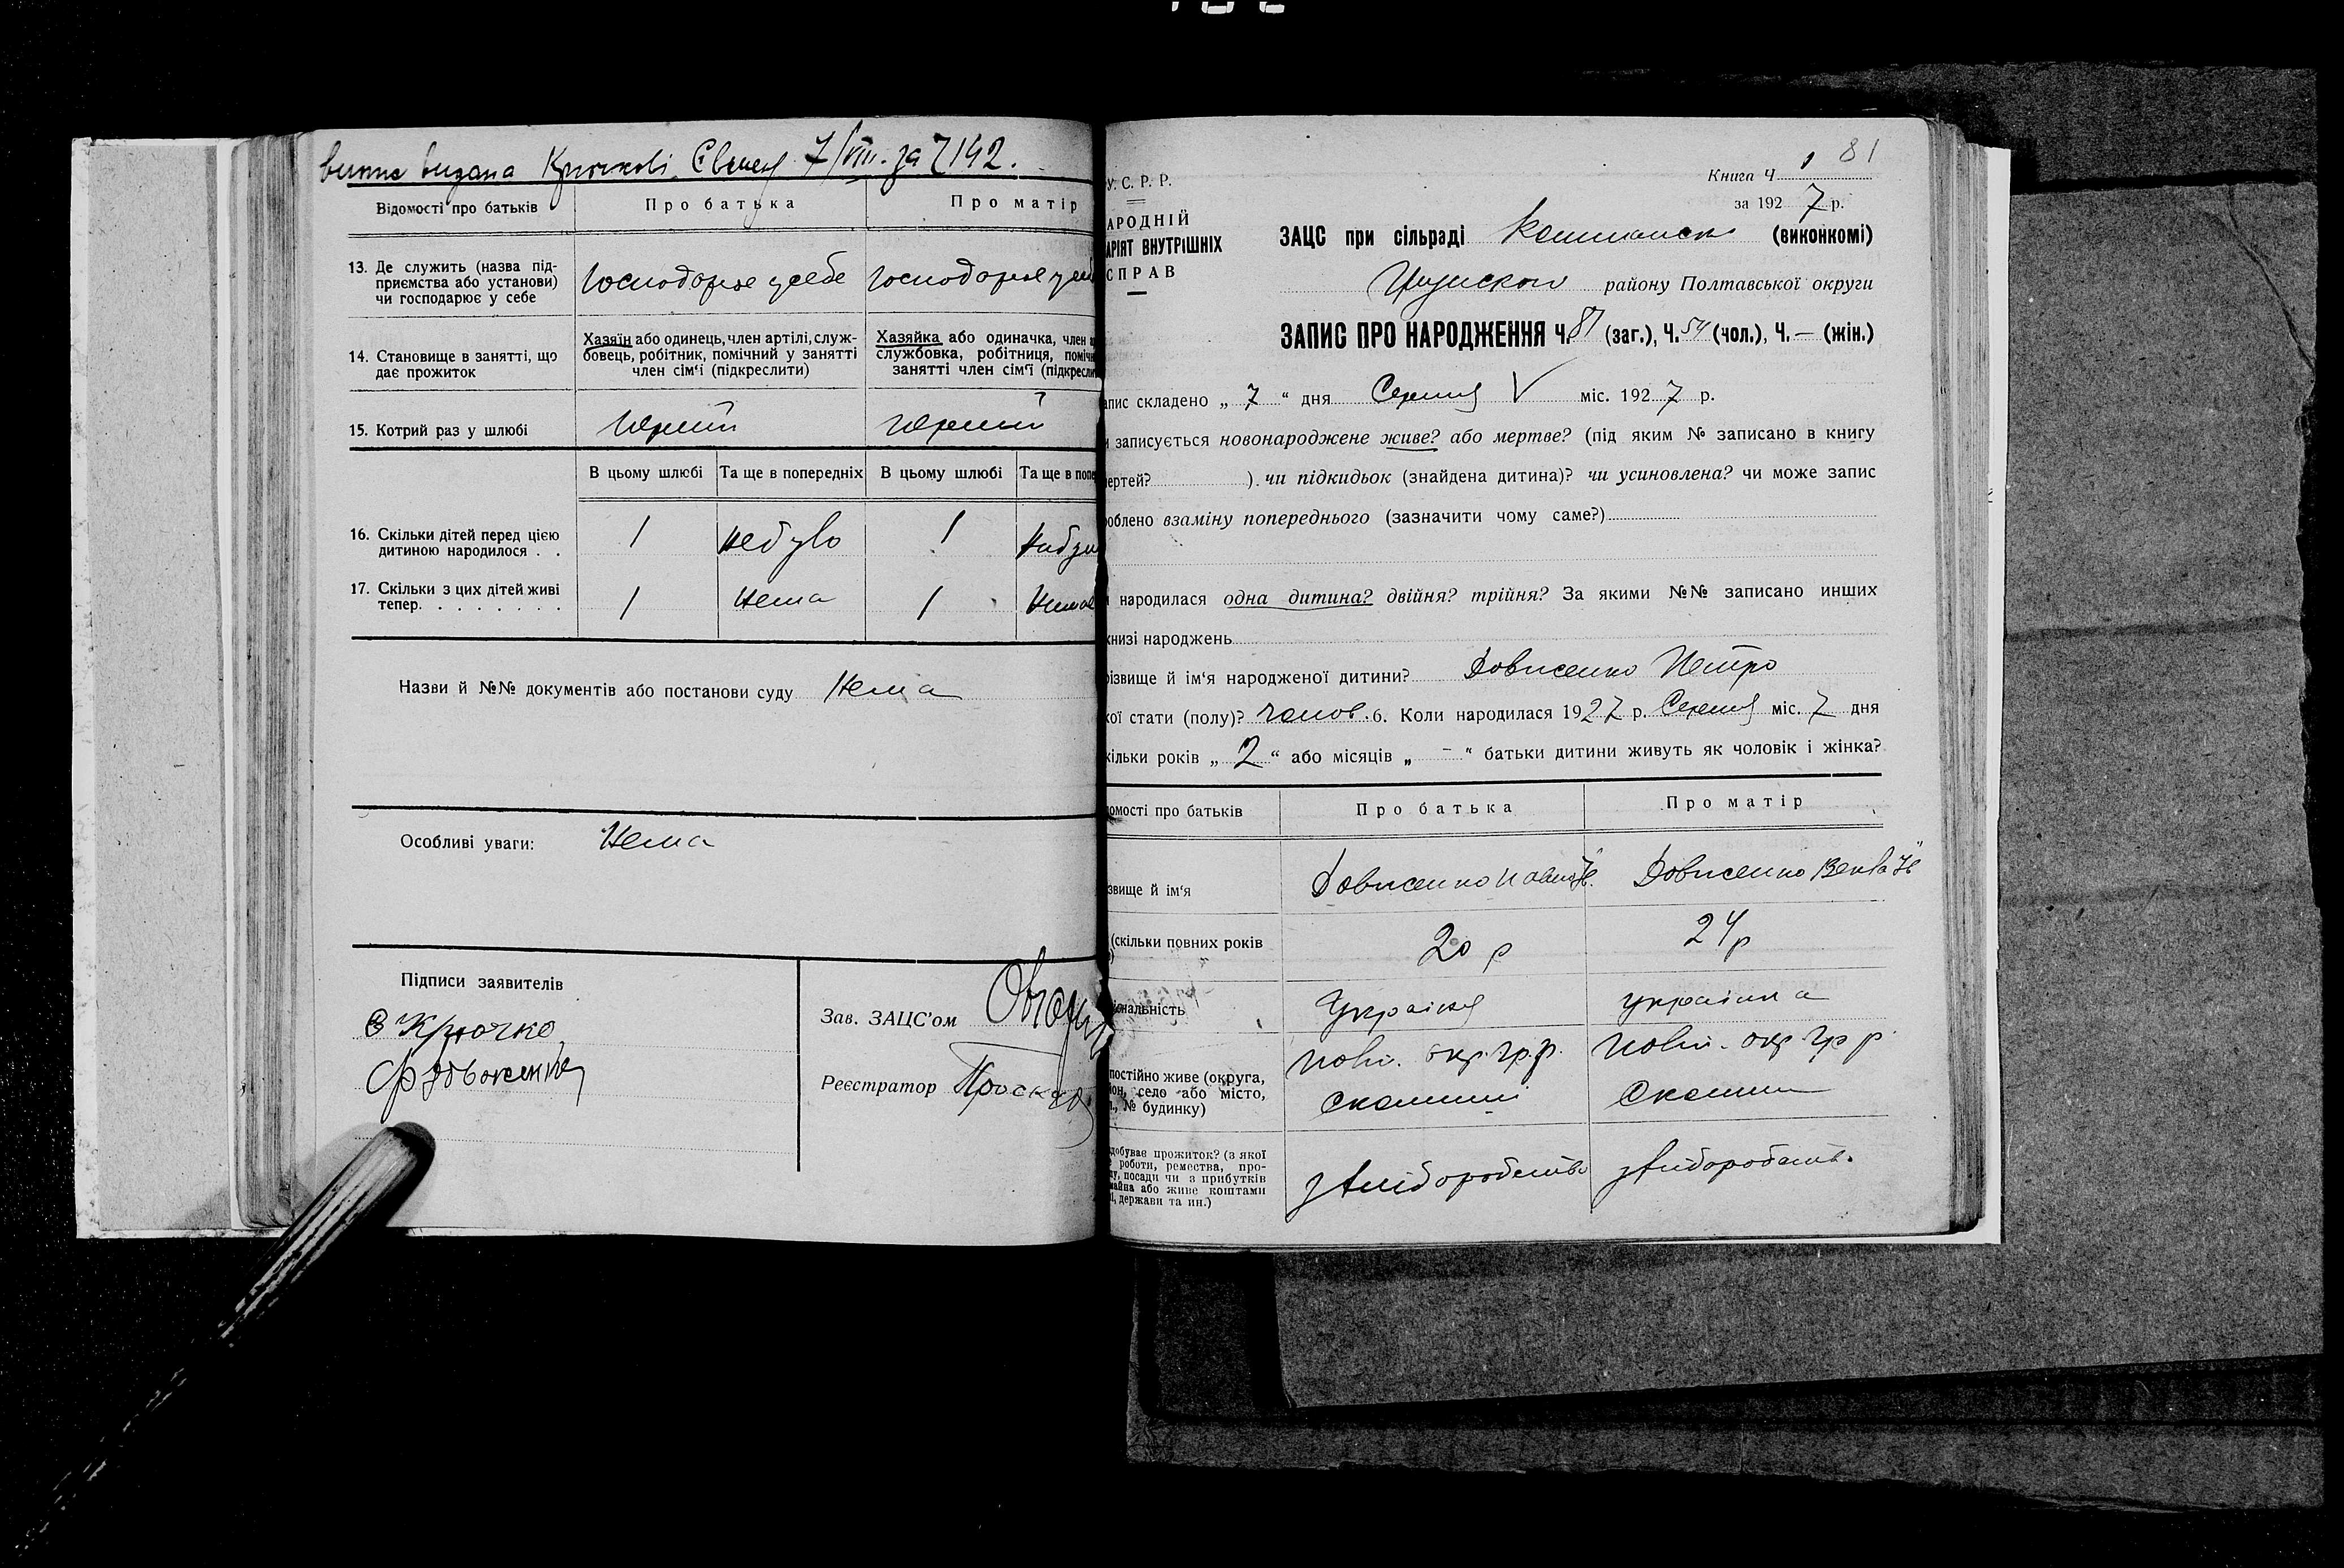 випис видана Крючкові 7/VIII. за 7142.
Відомості про батьків
Про батька
Про матір
13. Де служить (назва під-
приємства або установи)
чи господарює у себе
Господарює у себе
Господарює у себ
14. Становище в занятті, що
дає прожиток
Хазяїн або одинець, член артілі, служ-
бовець, робітник, помічний у занятті
член сім‘ї (підкреслити)
Хазяйка або одиначка, член а
службовка, робітниця, поміч
занятті член сім‘ї (підкресли
15. Котрий раз у шлюбі
Перший
Перший
В цьому шлюбі
Та ще в попередніх
В цьому шлюбі
Та ще в попе
16. Скільки дітей перед цією
дитиною народилося . .
1
Небуло
1
17. Скільки з цих дітей живі
тепер. . . . . . . .
1
Нема
1
Назви й №№ документів або постанови суду Нема
Особливі уваги: Нема
Підписи заявителів
Крючко
Зав. ЗАЦС’ом
Реєстратор
81
Книга Ч 1
за 1927 р.
У. С. Р. Р.
АРОДНІЙ
АРІЯТ ВНУТРІШНІХ
СПРАВ
ЗАЦС при сільраді (виконкомі)
району Полтавської округи
ЗАПИС ПРО НАРОДЖЕННЯ Ч. 81 (заг.), Ч. 54 (чол.), Ч. — (жін.)
апис складено „ 7 “ дня Серпня V міс. 1927 р.
записується новонароджене живе? або мертве? (під яким № записано в книгу
ертей? ). чи підкидьок (знайдена дитина)? чи усиновлена? чи може запис
облено взаміну попереднього (зазначити чому саме?)
народилася одна дитина? двійня? трійня? За якими №№ записано инших
книзі народжень
ізвище й ім‘я народженої дитини? Довженко Петро
кої стати (полу)? чолов. 6. Коли народилася 1927 р. Серпня міс. 7 дня
кільки років „ 2 “ або місяців „ – “ батьки дитини живуть як чоловік і жінка?
омості про батьків
Про батька
Про матір
звище й ім‘я
Довженко
Довженко
(скільки повних років
20 р
24 р
іональність
Українец
українка
постійно живе (округа,
он, село або місто,
., № будинку)
Полт. окр.
Полт. окр.
добуває прожиток? (з якої
роботи, ремества, про-
у, посади чи з прибутків
майна або живе коштами
, держави та ин.)
з хліборобства
з хліборобств.